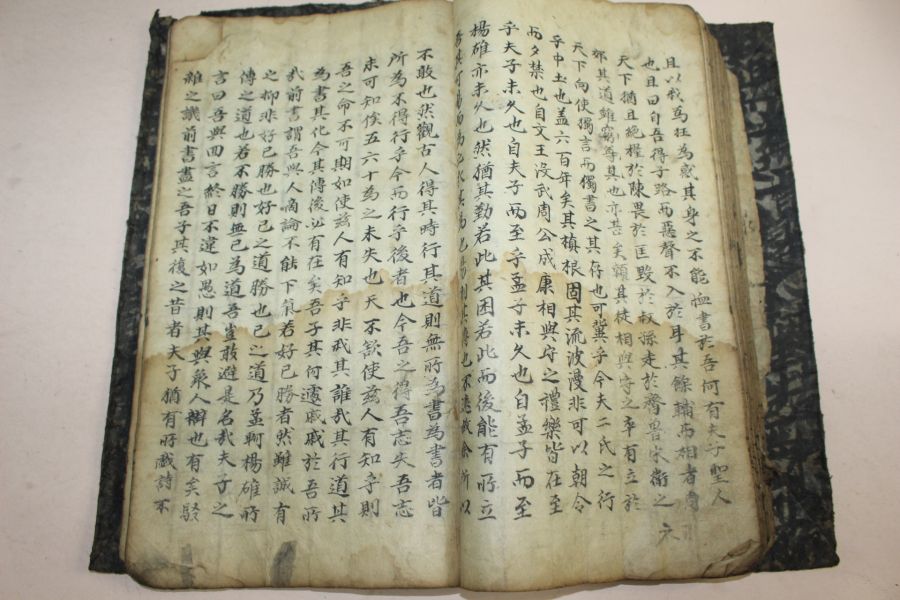 且以我爲狂爲惑其身之不能恤書於吾何有夫子聖人
也且曰自吾得子路而惡聲不入於耳其餘輔而相者周
天下猶且絶糧於陳畏於匡毀於叔孫走於齊魯宋衛之
郊其道雖窮尊其也亦甚矣賴其徒相與守之卒有立於
天下向使獨言而獨書之其存也可冀乎今夫二氏之行
乎中土也蓋六百年矣其植根固其流波漫非可以朝令
而夕禁也自文王沒武周公成康相與守之禮樂皆在至
乎夫子未久也自夫子而至乎孟子未久也自孟子而至
楊雄亦未久也然猶其勤若此其困若此而後能有所立
吾其可易而爲之哉其爲也易則其傳也不遠故余所以
不敢也然觀古人得其時行其道則無所爲書爲書者皆
所爲不得行乎今而行乎後者也今吾之得吾志失吾志
未可知俟五六十爲之未失也天不欲使玆人有知乎則
吾之命不可期如使玆人有知乎非我其誰哉其行道其
爲書其化今其傳後必有在矣吾子其何遽戚戚於吾所
哉前書謂吾與人商論不能下氣若好己勝者然雖誠有
之抑非好己勝也好己之道勝也己之道乃孟軻楊雄所
傳之道也若不勝則無已爲道吾豈敢避是名哉夫子之
言曰吾與回言終日不違如愚則其與衆人辯也有矣駁
雜之譏前書盡之吾子其復之昔者夫子猶有所戱詩不